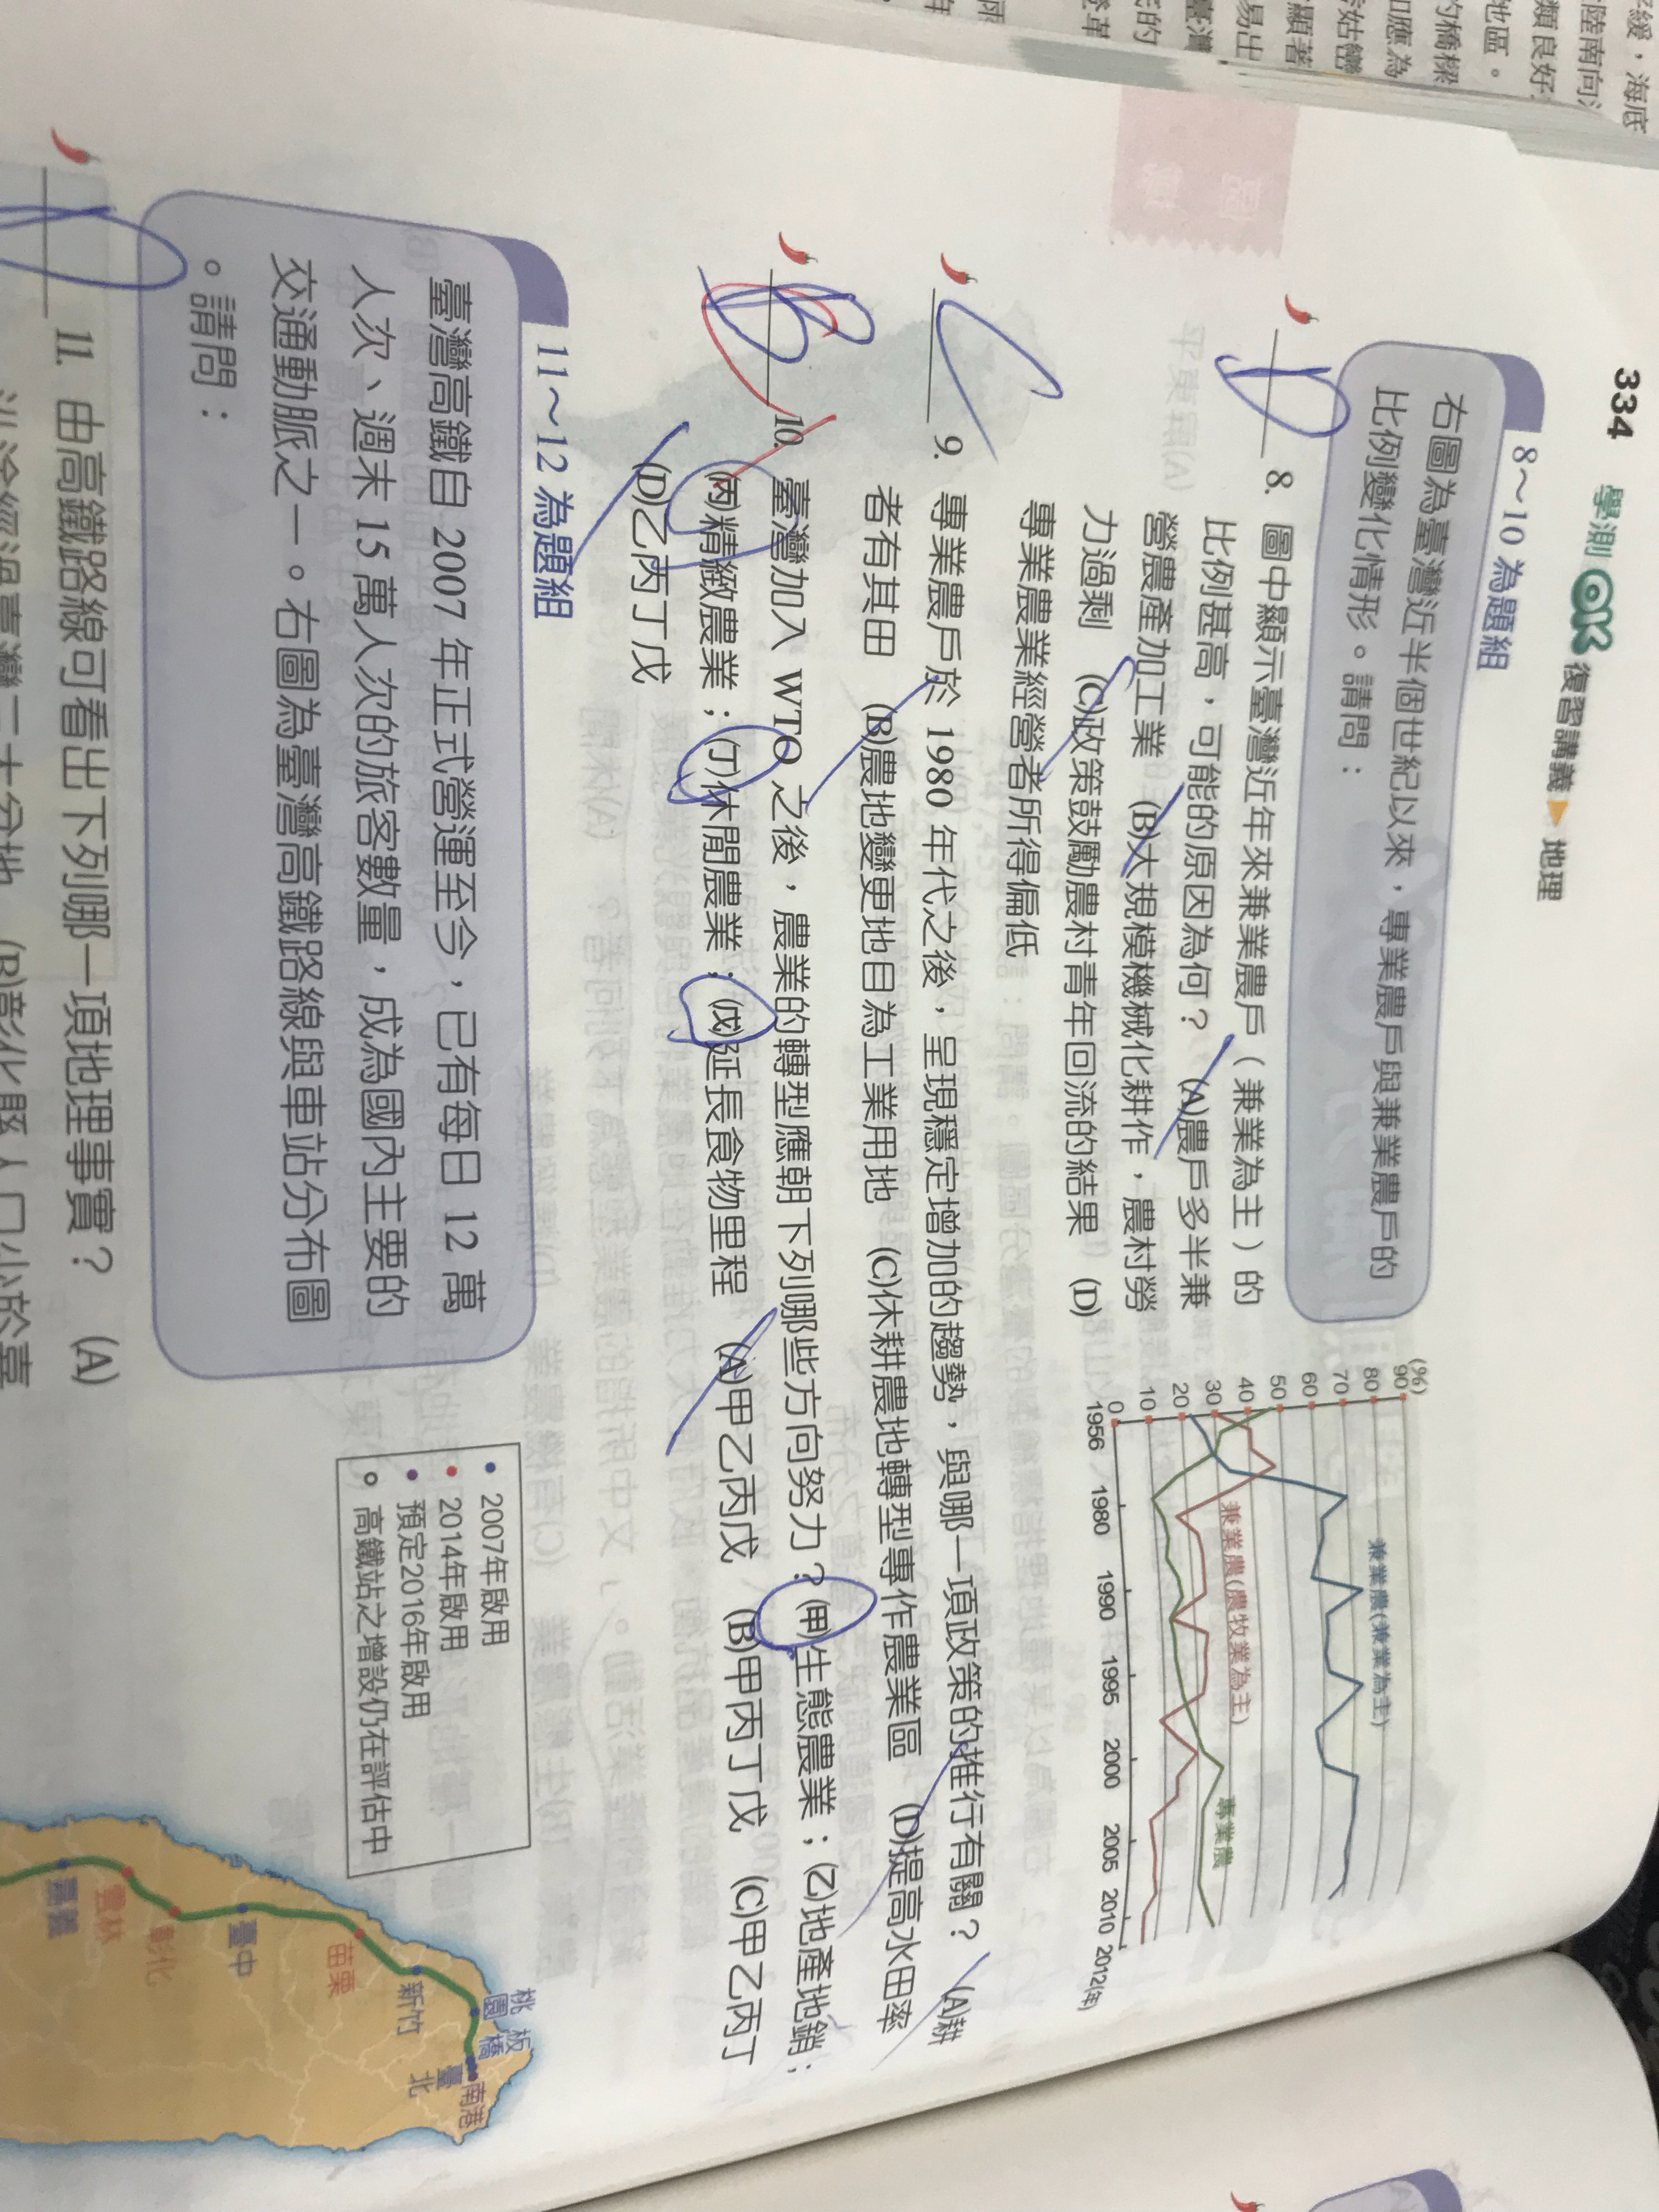 334 學測 OK 復習講義 地理
8～10 為題組
右圖為臺灣近半個世紀以來，專業農戶與兼業農戶的
比例變化情形。請問：
D 8. 圖中顯示臺灣近年來兼業農戶（兼業為主）的
比例甚高，可能的原因為何？ (A)農戶多半兼
營農產加工業 (B)大規模機械化耕作，農村勞
力過剩 (C)政策鼓勵農村青年回流的結果 (D)
專業農業經營者所得偏低
(%)
90
80
70
60
50
40
30
20
10
0
1956 1980 1990 1995 2000 2005 2010 2012(年)
兼業農(兼業為主)
兼業農(農牧業為主)
專業農
C 9. 專業農戶於 1980 年代之後，呈現穩定增加的趨勢，與哪一項政策的推行有關？ (A)耕
者有其田 (B)農地變更地目為工業用地 (C)休耕農地轉型專作農業區 (D)提高水田率
B 10. 臺灣加入 WTO 之後，農業的轉型應朝下列哪些方向努力？(甲)生態農業；(乙)地產地銷；
(丙)精緻農業；(丁)休閒農業；(戊)延長食物里程 (A)甲乙丙戊 (B)甲丙丁戊 (C)甲乙丙丁
(D)乙丙丁戊
11～12 為題組
臺灣高鐵自 2007 年正式營運至今，已有每日 12 萬
人次、週末 15 萬人次的旅客數量，成為國內主要的
交通動脈之一。右圖為臺灣高鐵路線與車站分布圖
。請問：
2007年啟用
2014年啟用
預定2016年啟用
高鐵站之增設仍在評估中
南港
臺北
板橋
桃園
新竹
苗栗
臺中
彰化
雲林
嘉義
11. 由高鐵路線可看出下列哪一項地理事實？ (A)
(B)彰化縣人口少於臺